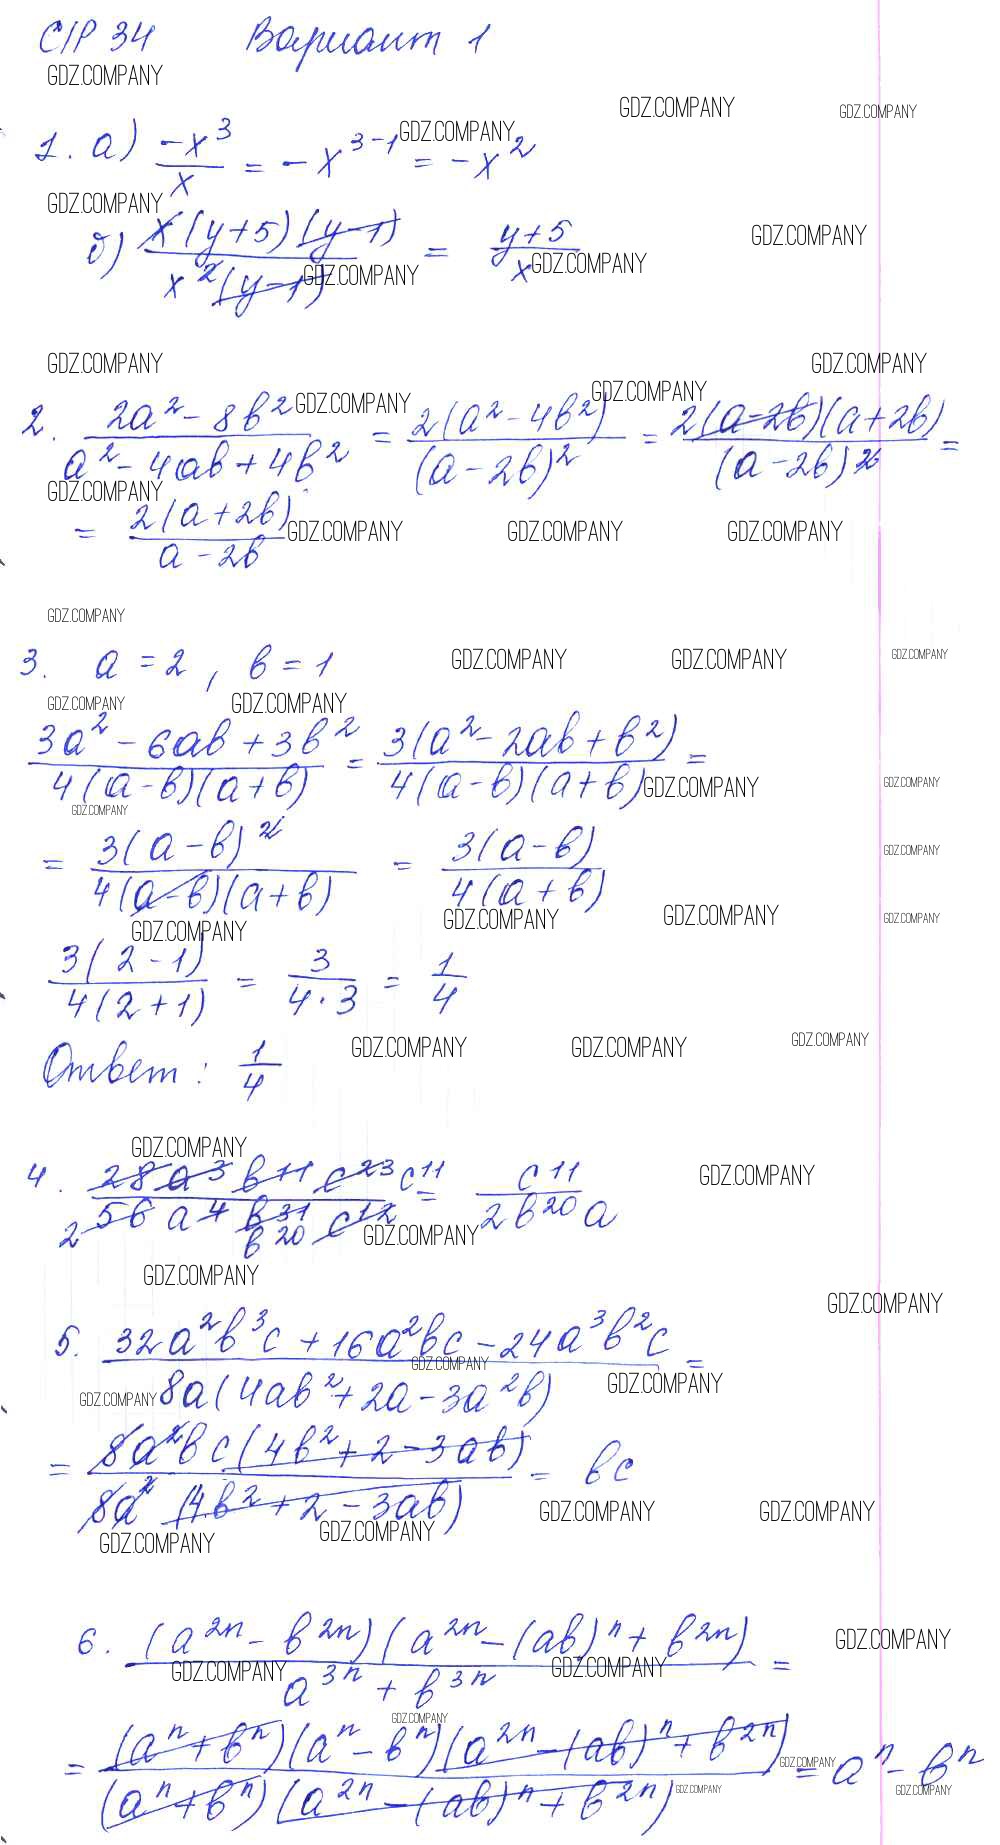 С/Р 34 Вариант 1
1. а) -x³/x = -x³⁻¹ = -x²
б) x(y+5)(y-1)/x²(y-1) = y+5/x
2. 2a²-8b²/a²-4ab+4b² = 2(a²-4b²)/(a-2b)² = 2(a-2b)(a+2b)/(a-2b)² =
= 2(a+2b)/a-2b
3. a=2, b=1
3a²-6ab+3b²/4(a-b)(a+b) = 3(a²-2ab+b²)/4(a-b)(a+b) =
= 3(a-b)²/4(a-b)(a+b) = 3(a-b)/4(a+b)
3(2-1)/4(2+1) = 3/4·3 = 1/4
Ответ: 1/4
4. 28a³b¹¹c²³ c¹¹/2 56a⁴b³¹c¹² b²⁰ = c¹¹/2b²⁰a
5. 32a²b³c+16a²bc-24a³b²c/8a(4ab²+2a-3a²b) =
= 8a²bc(4b²+2-3ab)/8a²(4b²+2-3ab) = bc
6. (a²ⁿ-b²ⁿ)(a²ⁿ-(ab)ⁿ+b²ⁿ)/a³ⁿ+b³ⁿ =
= (aⁿ+bⁿ)(aⁿ-bⁿ)(a²ⁿ-(ab)ⁿ+b²ⁿ)/(aⁿ+bⁿ)(a²ⁿ-(ab)ⁿ+b²ⁿ) = aⁿ-bⁿ
GDZ.COMPANY